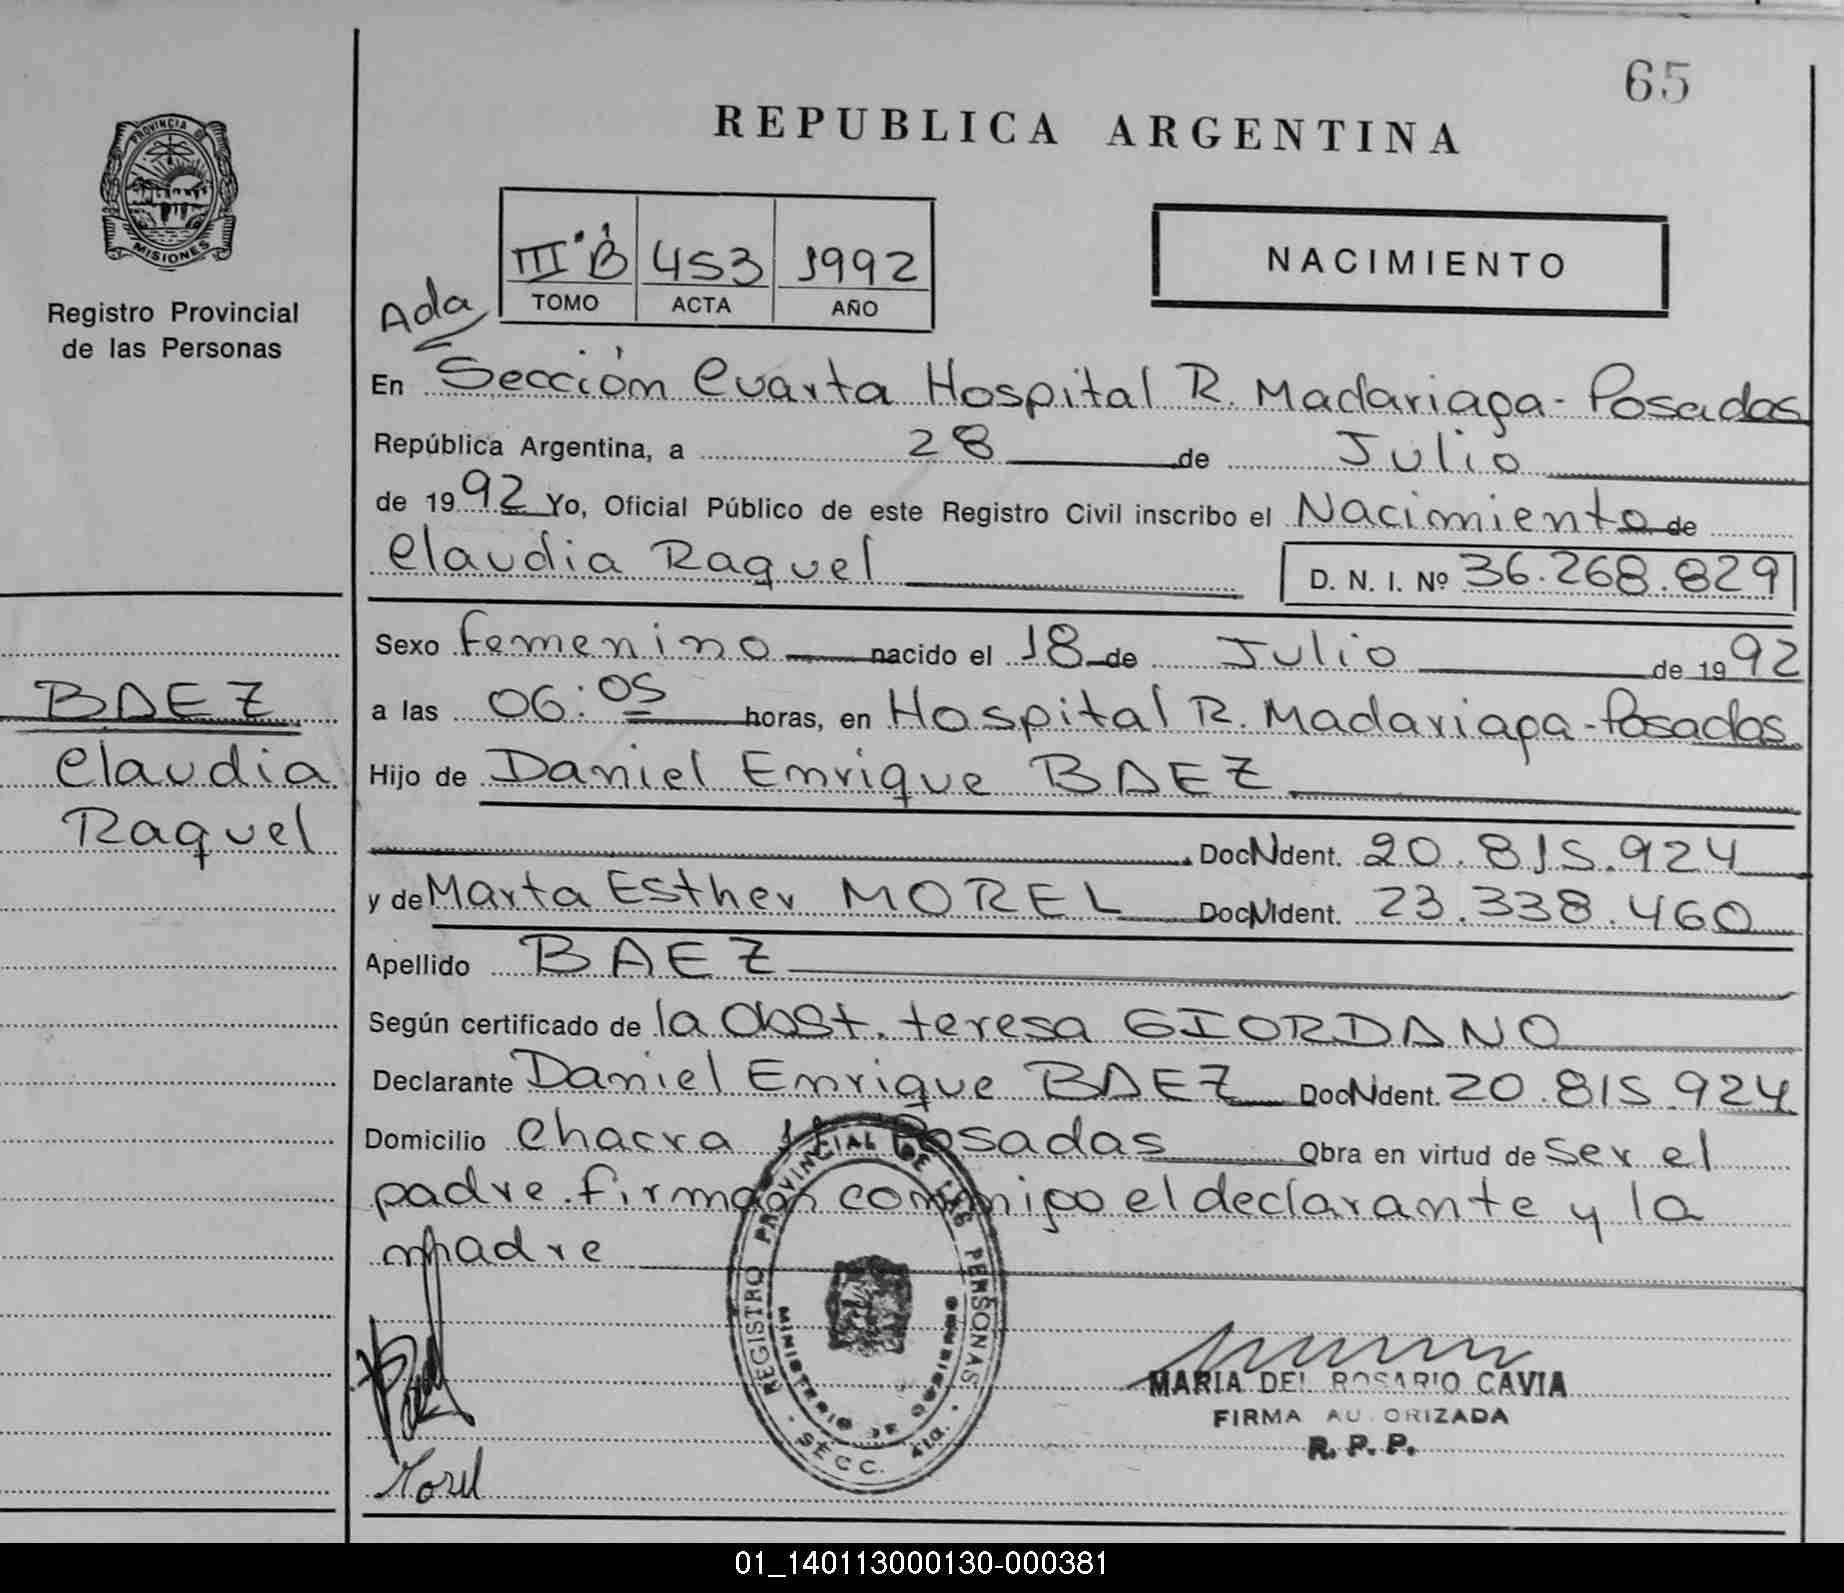 65
REPUBLICA ARGENTINA
PROVINCIA DE
MISIONES
Registro Provincial
de las Personas
III° B 453 1992
TOMO ACTA AÑO
NACIMIENTO
Ada
En Sección Cuarta Hospital R. Madariaga - Posadas
República Argentina, a 28 de Julio
de 1992 Yo, Oficial Público de este Registro Civil inscribo el Nacimiento de
Claudia Raquel D. N. I. Nº 36.268.829
Sexo femenino nacido el 18 de Julio de 1992
a las 06:05 horas, en Hospital R. Madariaga - Posadas
Hijo de Daniel Enrique BAEZ
Doc. Ident. 20.815.924
y de Marta Esther MOREL Doc. Ident. 23.338.460
Apellido BAEZ
Según certificado de la Obst. teresa GIORDANO
Declarante Daniel Enrique BAEZ Doc. Ident. 20.815.924
Domicilio Chacra Posadas Obra en virtud de ser el
padre. firman conmigo el declarante y la
madre
BAEZ
Claudia
Raquel
REGISTRO PROVINCIAL DE LAS PERSONAS
MINISTERIO DE GOBIERNO
SECC. 4ta.
Morel
MARIA DEL ROSARIO CAVIA
FIRMA AUTORIZADA
R. P. P.
01_140113000130-000381